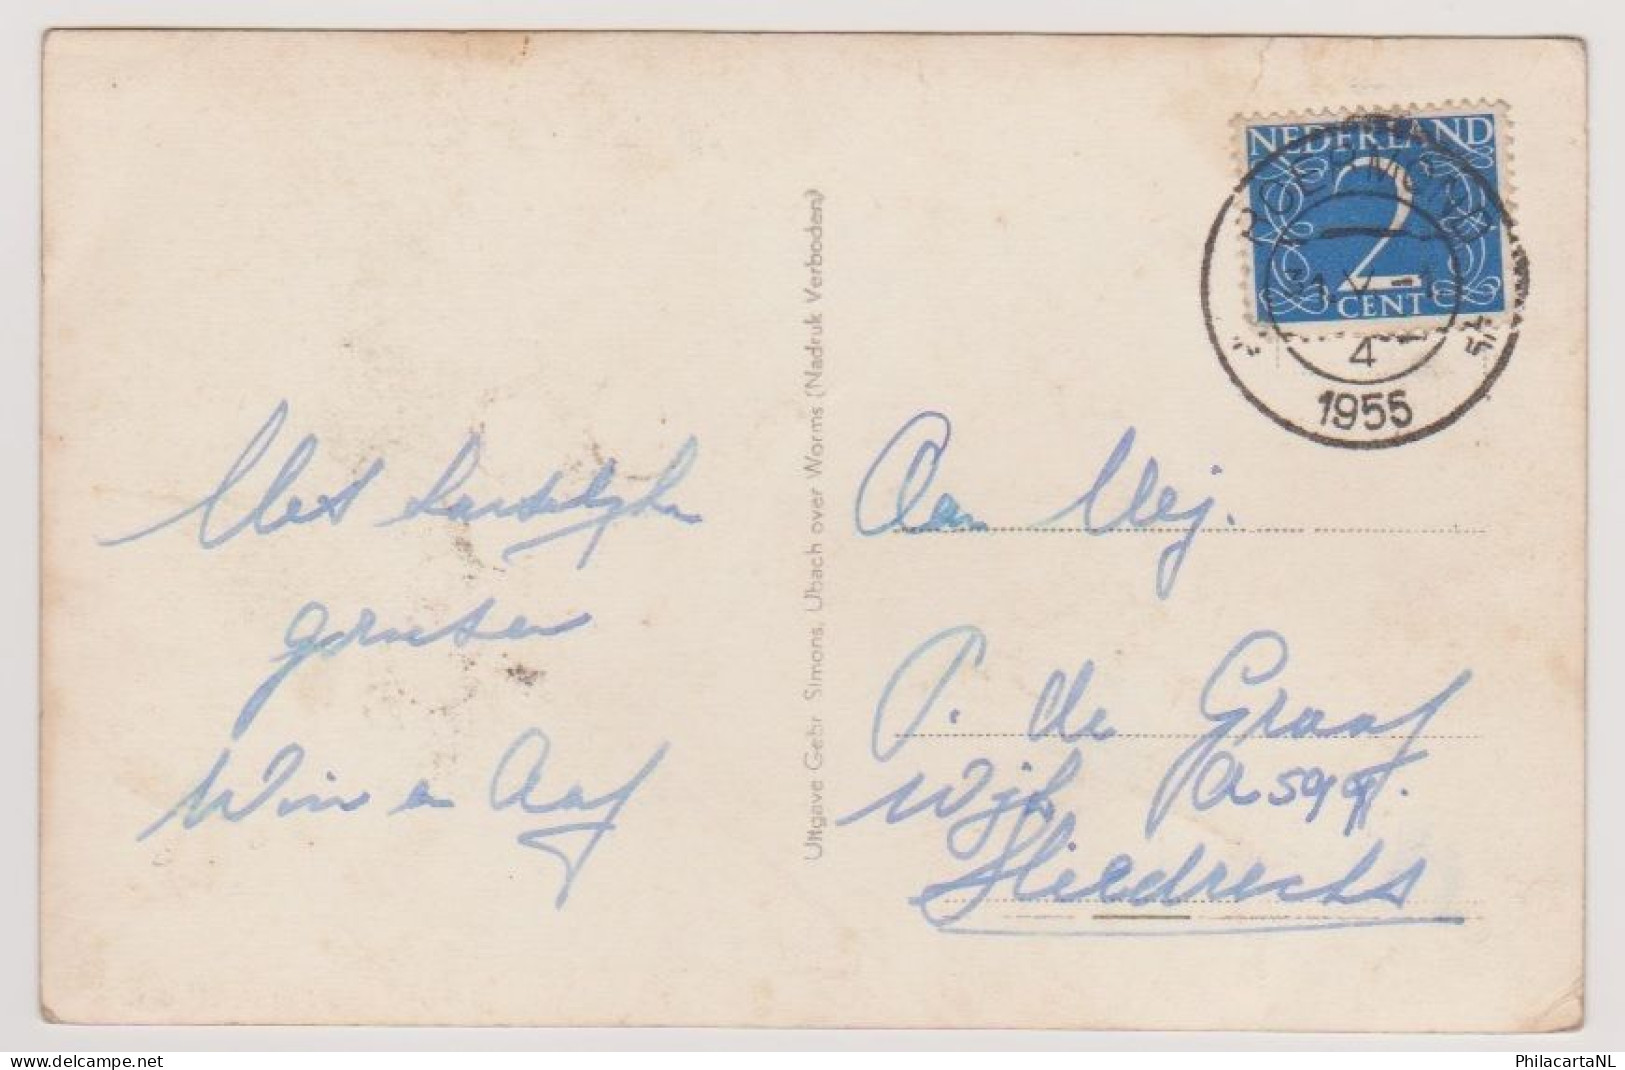 Met hartelijke
groeten
Wim en Aaf
Uitgave Gebr Simons, Ubach over Worms (Nadruk Verboden)
NEDERLAND
2
CENT
ROERMOND
4
1955
Aan Mej.
P. de Graaf
Wijk A 599
Sliedrecht
PhilacartaNL